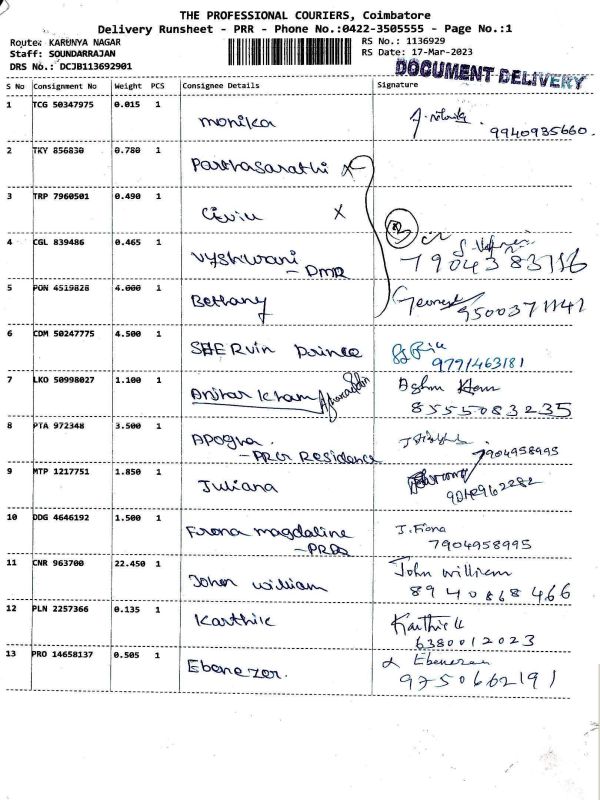 THE PROFESSIONAL COURIERS, Coimbatore
Delivery Runsheet - PRR - Phone No.:0422-3505555 - Page No.:1
Route: KARUNYA NAGAR
RS No.: 1136929
Staff: SOUNDARRAJAN
RS Date: 17-Mar-2023
DRS No.: DCJB113692901
DOCUMENT DELIVERY
S No Consignment No Weight PCS Consignee Details Signature
1 TCG 50347975 0.015 1 Monika
9940935660.
2 TKY 856830 0.780 1 Parthasarathi x
3 TRP 7960501 0.490 1 x
4 CGL 839486 0.465 1 Vyshwani
- DMR 7904383116
5 PON 4519828 4.000 1 Bethany
9500371141
6 CDM 50247775 4.500 1 SHERvin Prince
9791463181
7 LKO 50998027 1.100 1 Khan
8555083235
8 PTA 972348 3.500 1 Apogha.
- PRGR Residence 7904958995
9 MTP 1217751 1.850 1 Juliana
9042962282
10 DDG 4646192 1.500 1 Frona magdaline J. Fiona
7904958995
11 CNR 963700 22.450 1 John william John william
8940868466
12 PLN 2257366 0.135 1 Karthik Karthick
6380012023
13 PRO 14658137 0.505 1 Ebenezer. Ebenezer
9750662191